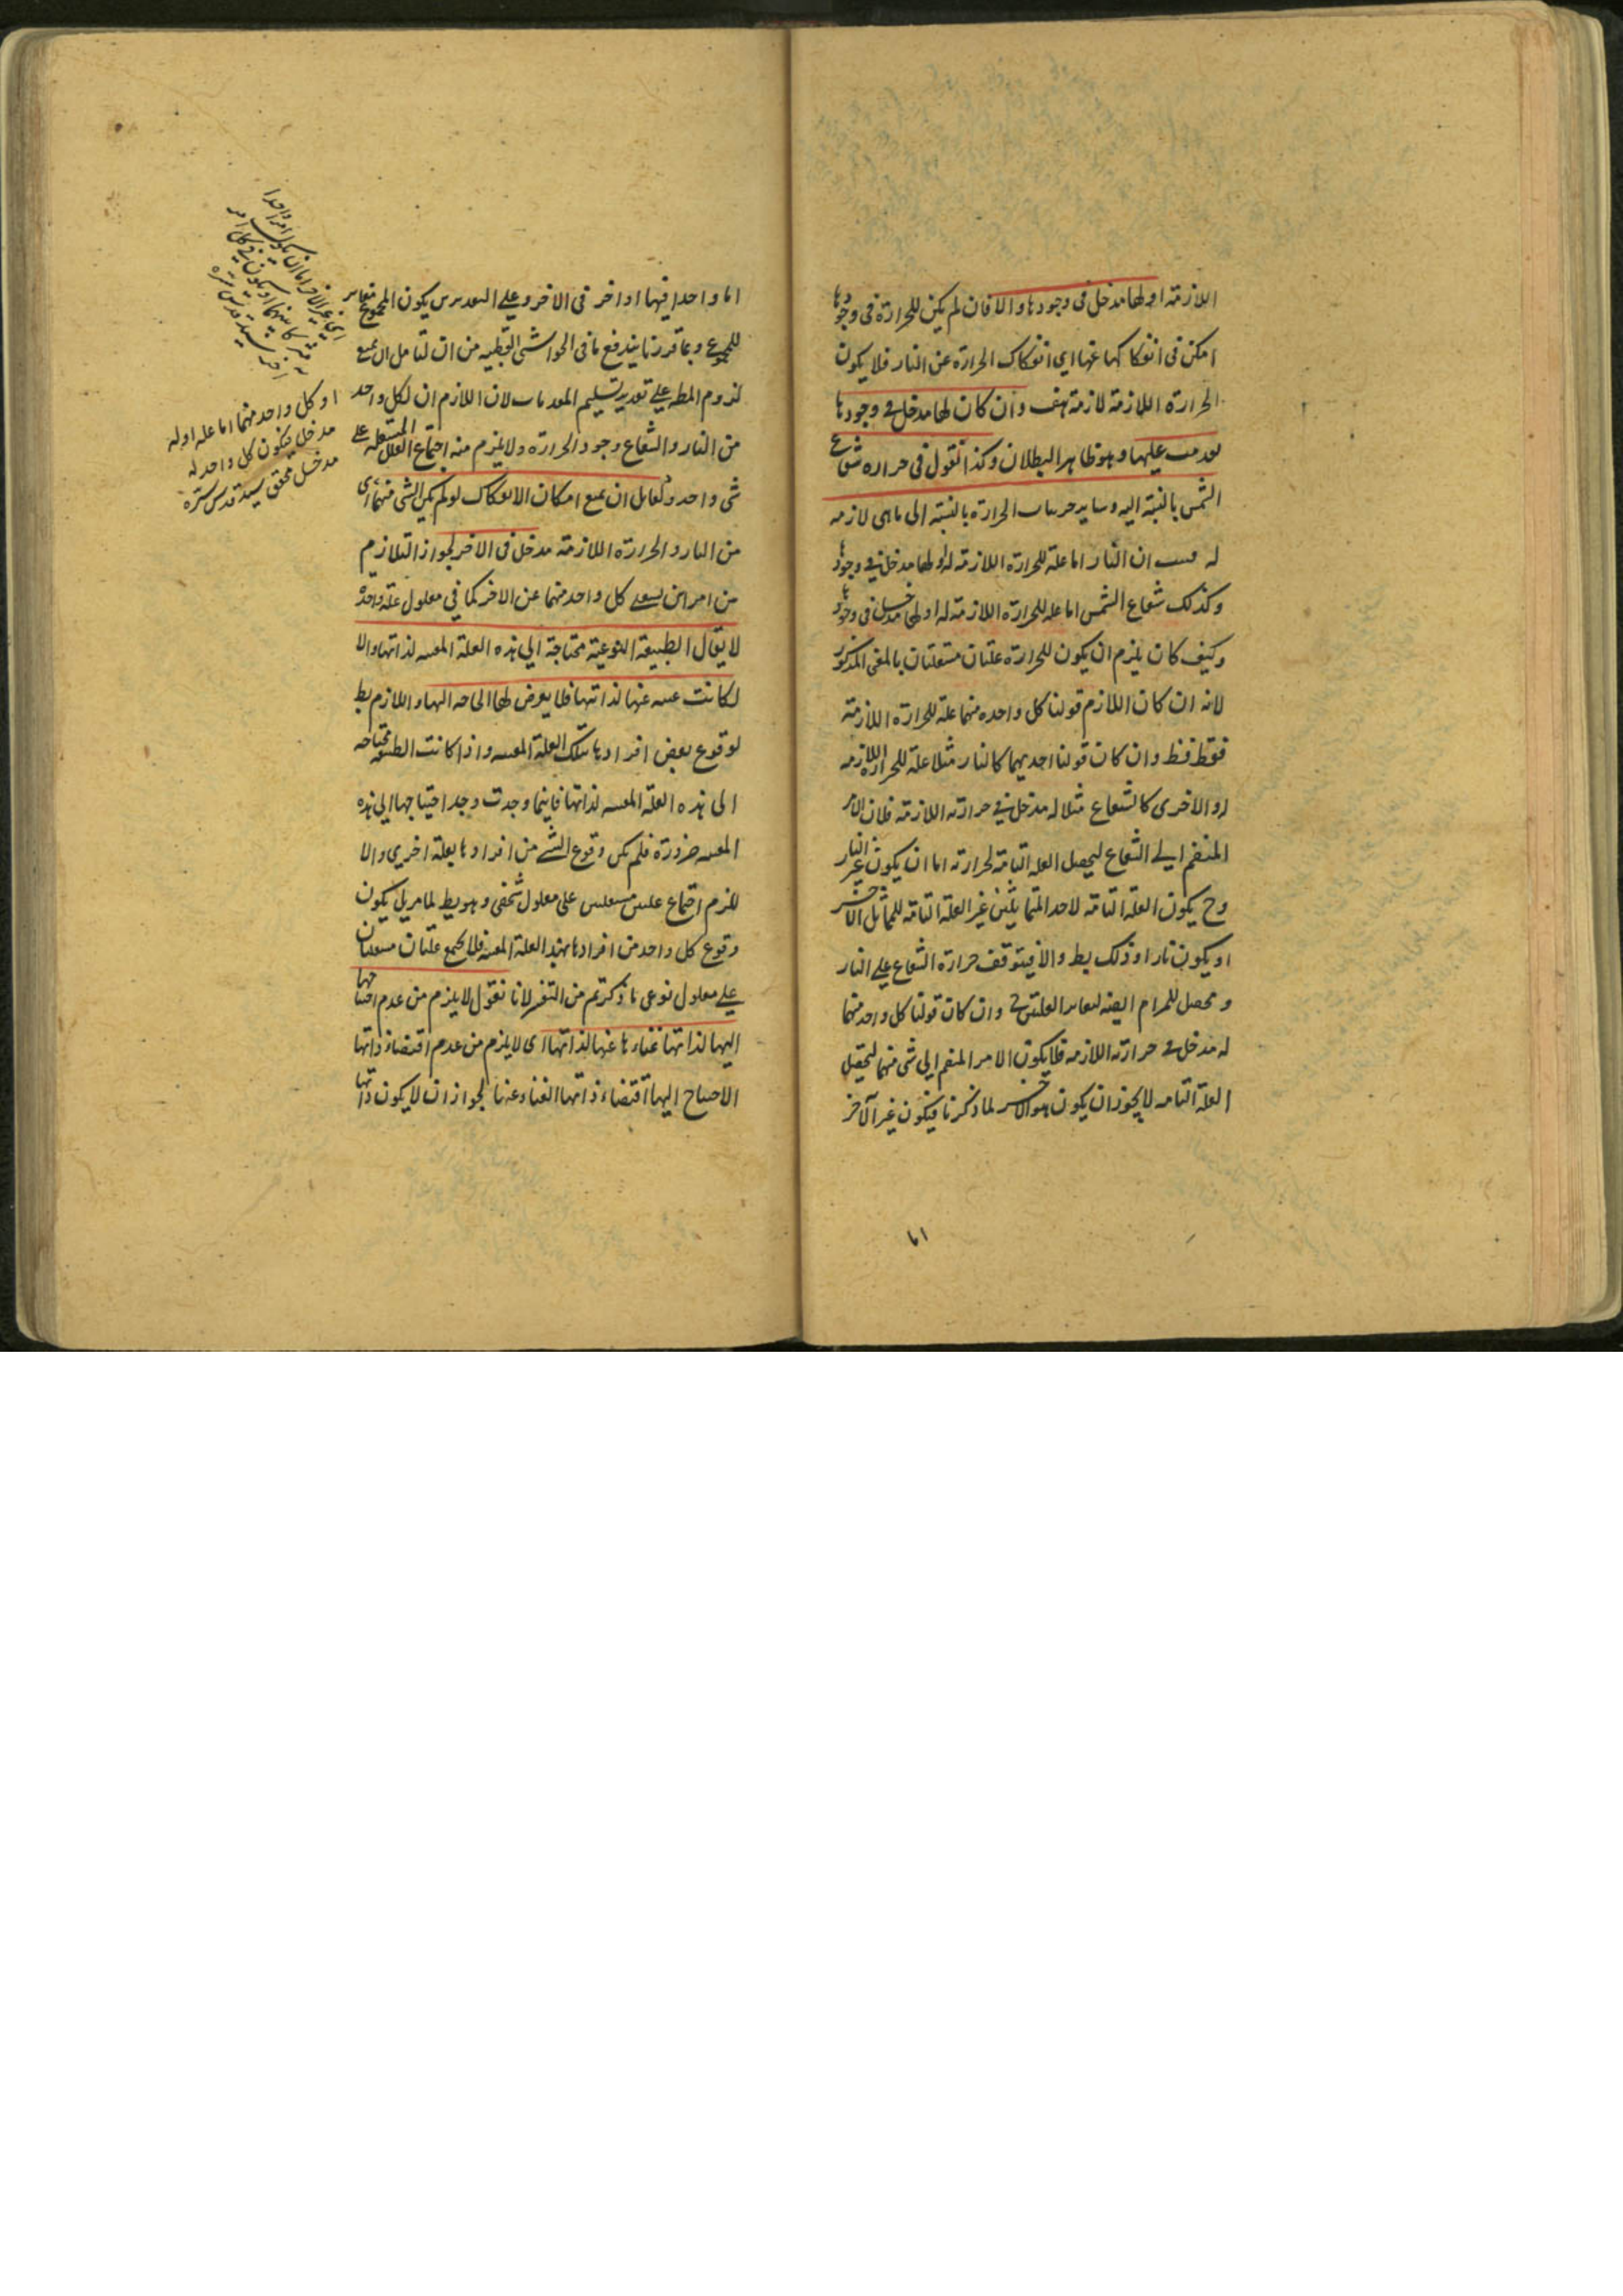 اللازمة او لها مدخل فى وجودها والا فان لم يكن للحرارة فى وجودها
امكن فى انفكاكها عنها اى انفكاك الحرارة عن النار فلا يكون
الحرارة اللازمة لازمة هف وان كان لها مدخل فى وجودها
تقدمت عليها وهو ظاهر البطلان وكذا القول فى حرارة شعاع
الشمس بالنسبة اليه وساير جزييات الحرارة بالنسبة الى ما هى لازمة
له ان النار اما علة للحرارة اللازمة له او لها مدخل فى وجودها
وكذلك شعاع الشمس اما علة للحرارة اللازمة له او لها مدخل فى وجودها
وكيف كان يلزم ان يكون للحرارة علتان مستقلتان بالمعنى المذكور
لانه ان كان اللازم قولنا كل واحدة منهما علة للحرارة اللازمة
فقط فظ وان كان قولنا احديهما كالنار مثلا علة للحرارة اللازمة
له والاخرى كالشعاع مثلا له مدخل فى حرارته اللازمة فلان الامر
المنضم الى الشعاع ليحصل العلة التامة لحرارته اما ان يكون غير النار
وح يكون العلة التامة لاحد المتماثلين غير العلة التامة للمماثل الآخر
او يكون نارا وذلك بط والا فيتوقف حرارة الشعاع على النار
ومحصل للمرام ايضا لتغاير العلتين وان كان قولنا كل واحد منهما
له مدخل فى حرارته اللازمة فلا يكون الامر المنضم الى شى منهما لتحصيل
العلة التامة لا يجوز ان يكون هو الاخر لما ذكرنا فيكون غير الآخر
اما واحدا فيهما او اخر فى الآخر وعلى التقديرين يكون المجموع مغايرا
للمجموع وبما قررنا يندفع ما فى الحواشى القطبية من ان لقايل ان يمنع
لزوم المط على تقدير تسليم المقدمات لان اللازم ان لكل واحد
من النار والشعاع وجود الحرارة ولا يلزم منه اجتماع العلل المستقلة على
شى واحد ولقايل ان يمنع امكان الانفكاك لو لم يكن لشى منهما اى
من النار والحرارة اللازمة مدخل فى الاخر لجواز التلازم
بين امرين يستغنى كل واحد منهما عن الاخر كما فى معلولى علة واحدة
لا يقال الطبيعة النوعية محتاجة الى هذه العلة المعينة لذاتها والا
لكانت غنية عنها لذاتها فلا يعرض لها الحاجة اليها واللازم بط
لوقوع بعض افرادها بتلك العلة المعينة واذا كانت الطبيعة محتاجة
الى هذه العلة المعينة لذاتها فاينما وجدت وجد احتياجها الى هذه
المعينة ضرورة فلم يكن وقوع الشى من افرادها بعلة اخرى والا
لزم اجتماع علتين مستقلتين على معلول شخصى وهو بط لما مر بل يكون
وقوع كل واحد من افرادها بهذه العلة المعينة فلا يجتمع علتان مستقلتان
على معلول نوعى ما ذكرتم من التفسير لانا نقول لا يلزم من عدم احتياجها
اليها لذاتها غناءها عنها لذاتها اى لا يلزم من عدم اقتضاء ذاتها
الاحتياج اليها اقتضاء ذاتها الغناء عنها لجواز ان لا يكون ذاتها
اى غير الاخر اما ان يكون امرا واحدا
مشتركا بينهما او يكون فى كل امر
اخر سيد قدس سره
او كل واحد منهما اما علة او له
مدخل فيكون كل واحد له
مدخل محقق سيد قدس سره